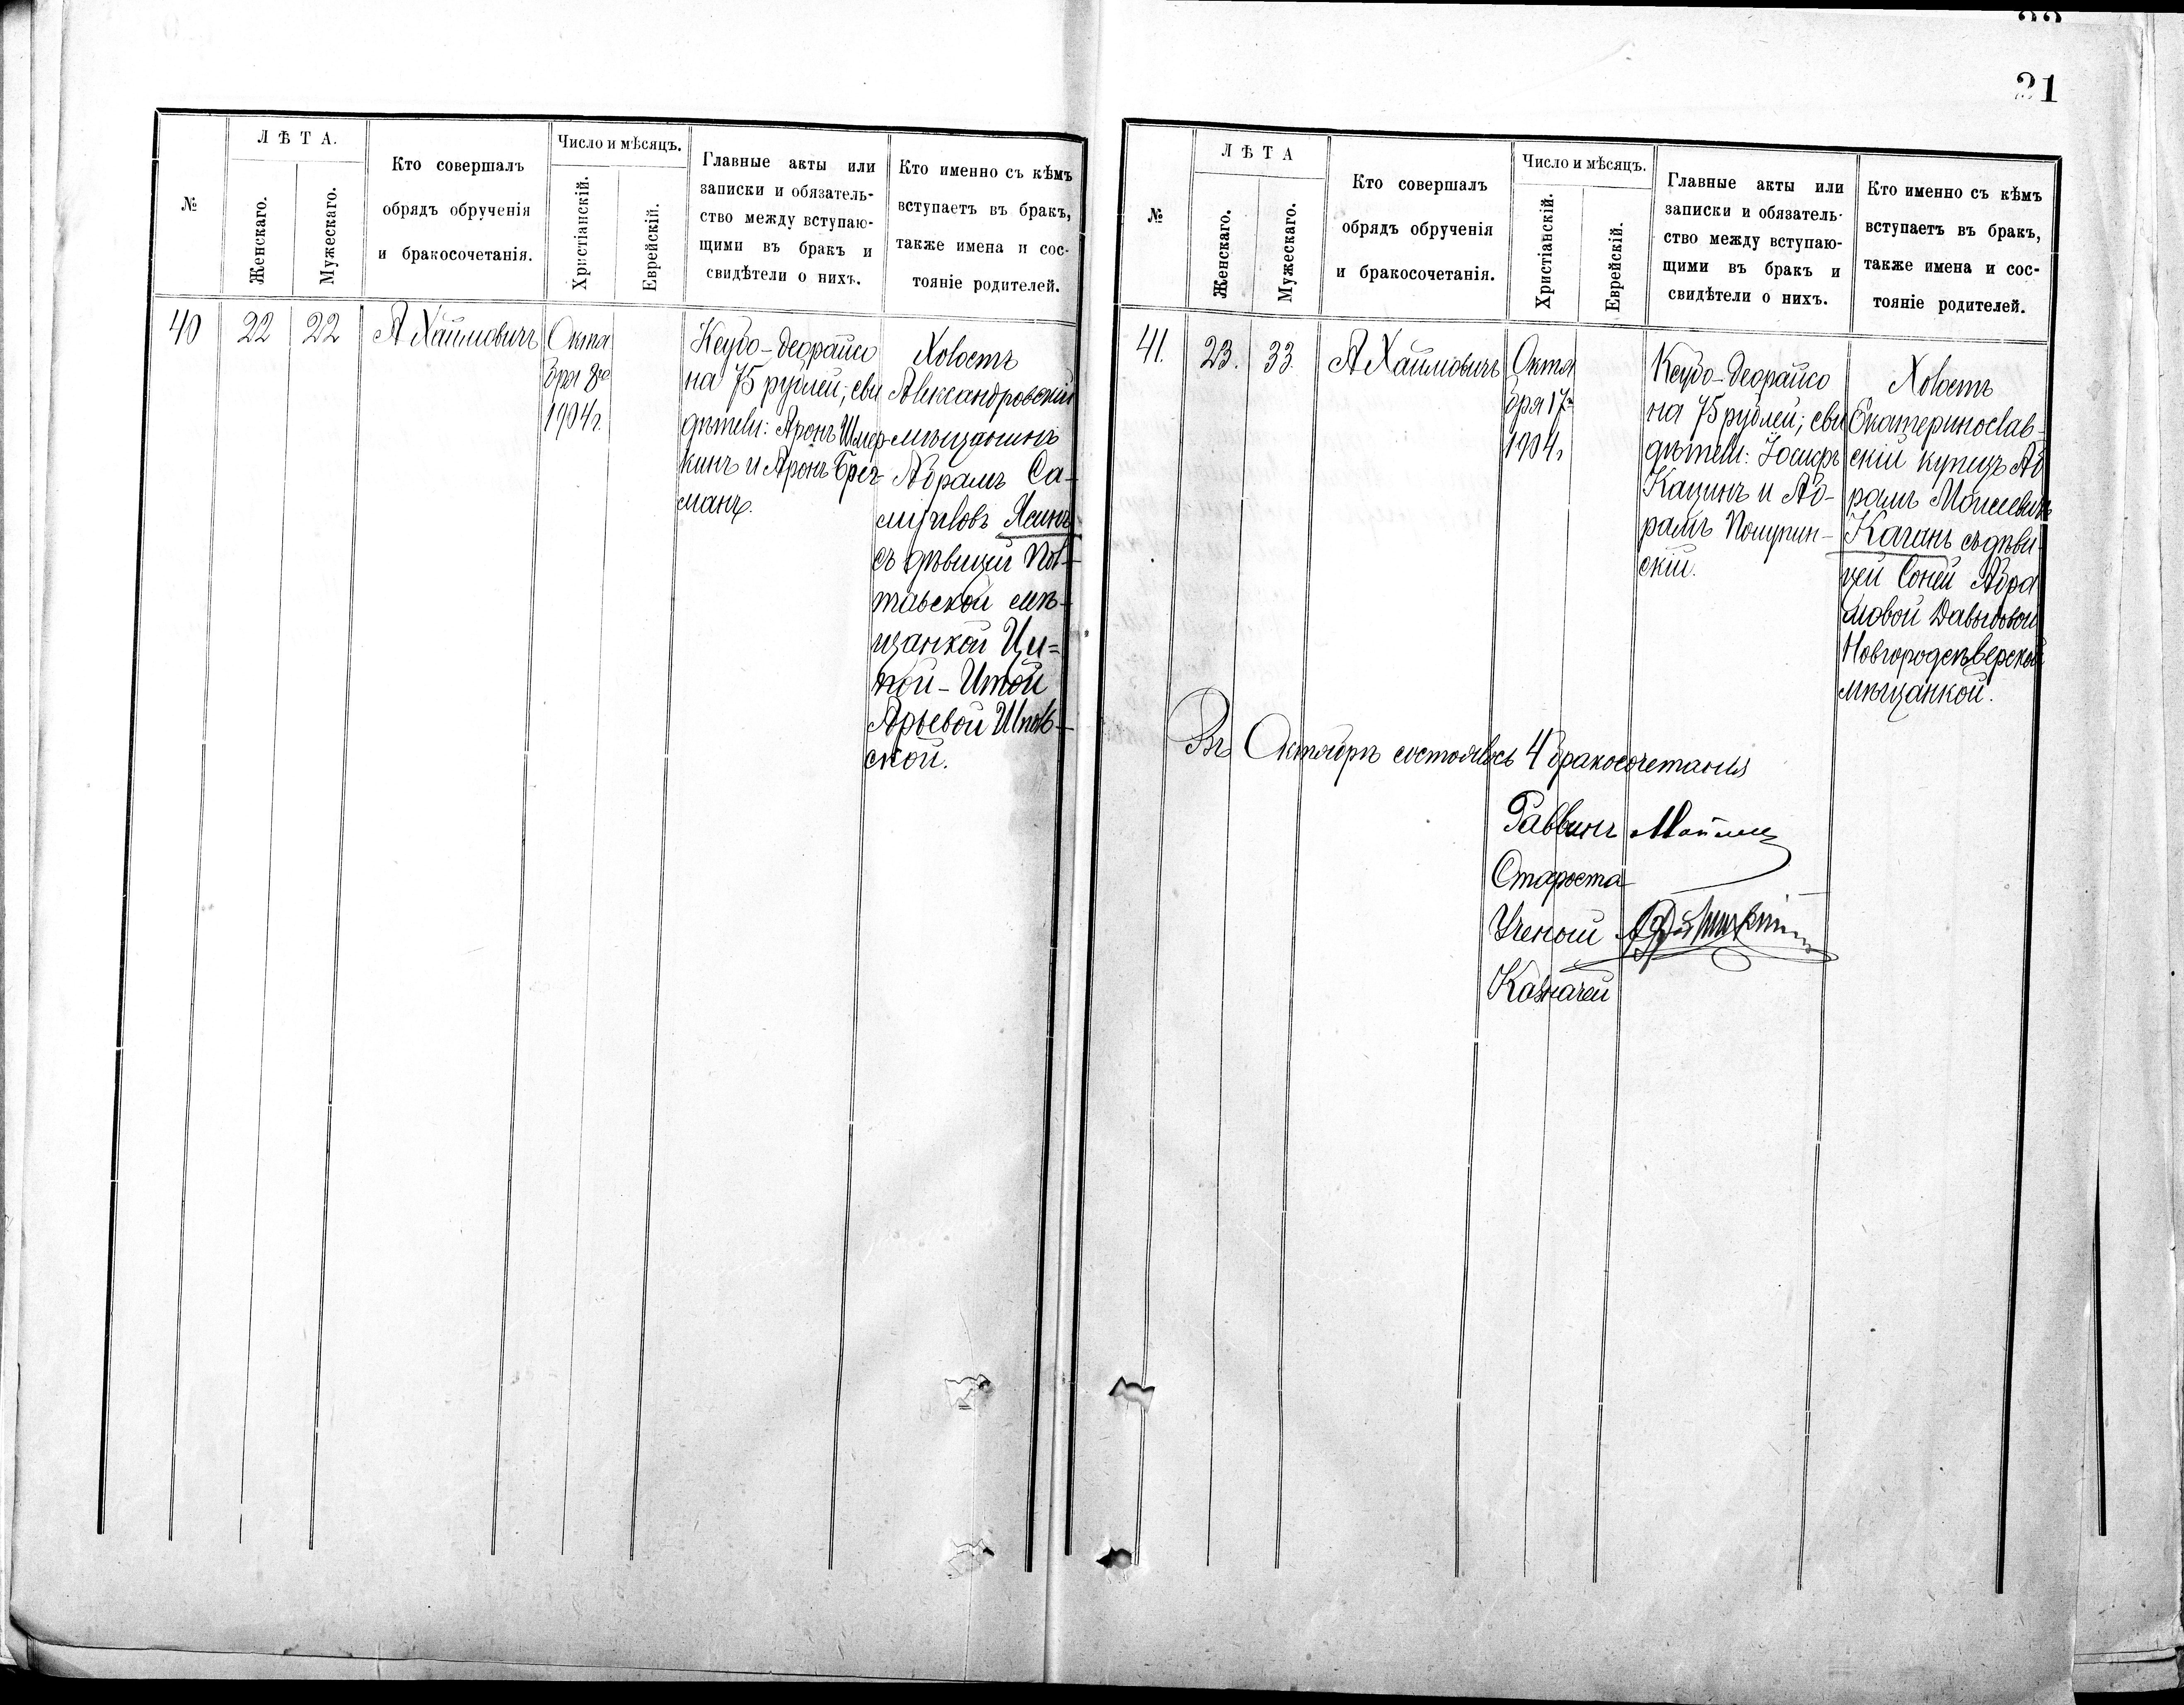 21
№
ЛѢТА.
Женскаго.
Мужескаго.
Кто совершалъ
обрядъ обрученія
и бракосочетанія.
Число и мѣсяцъ.
Христіанскій.
Еврейскій.
Главные акты или
записки и обязатель-
ство между вступаю-
щими въ бракъ и
свидѣтели о нихъ.
Кто именно съ кѣмъ
вступаетъ въ бракъ,
также имена и сос-
тояніе родителей.
40
22
22
А Хаймовичъ
Октя
бря 8го
1904г.
Кеубо-деорайсо
на 75 рублей; сви
дѣтели: Аронъ Шмер-
кинъ и Аронъ Брег-
манъ.
Холостъ
Александровскій
мѣщанинъ
Абрамъ Са-
муиловъ Ясинъ
съ дѣвицей Пол-
тавской мѣ-
щанкой Ци-
пой-Итой
Арьевой Шполь-
ской.
№
ЛѢТА
Женскаго.
Мужескаго.
Кто совершалъ
обрядъ обрученія
и бракосочетанія.
Число и мѣсяцъ.
Христіанскій.
Еврейскій.
Главные акты или
записки и обязатель-
ство между вступаю-
щими въ бракъ и
свидѣтели о нихъ.
Кто именно съ кѣмъ
вступаетъ въ бракъ,
также имена и сос-
тояніе родителей.
41.
23.
33.
А Хаймовичъ
Октя
бря 17го
1904г
Кеубо-деорайсо
на 75 рублей; сви
дѣтели: Іосифъ
Кацинъ и Аб-
рамъ
скій.
Холостъ
Екатеринослав-
скій купецъ Аб
рамъ Моисеевичъ
Каганъ съ дѣви
цей Соней Абра
мовой Давыдовой
Новгородсѣверской
мѣщанкой.
Въ Октябрѣ состоялось 4 бракосочетанія
Раввинъ
Староста
Ученый
Казначей